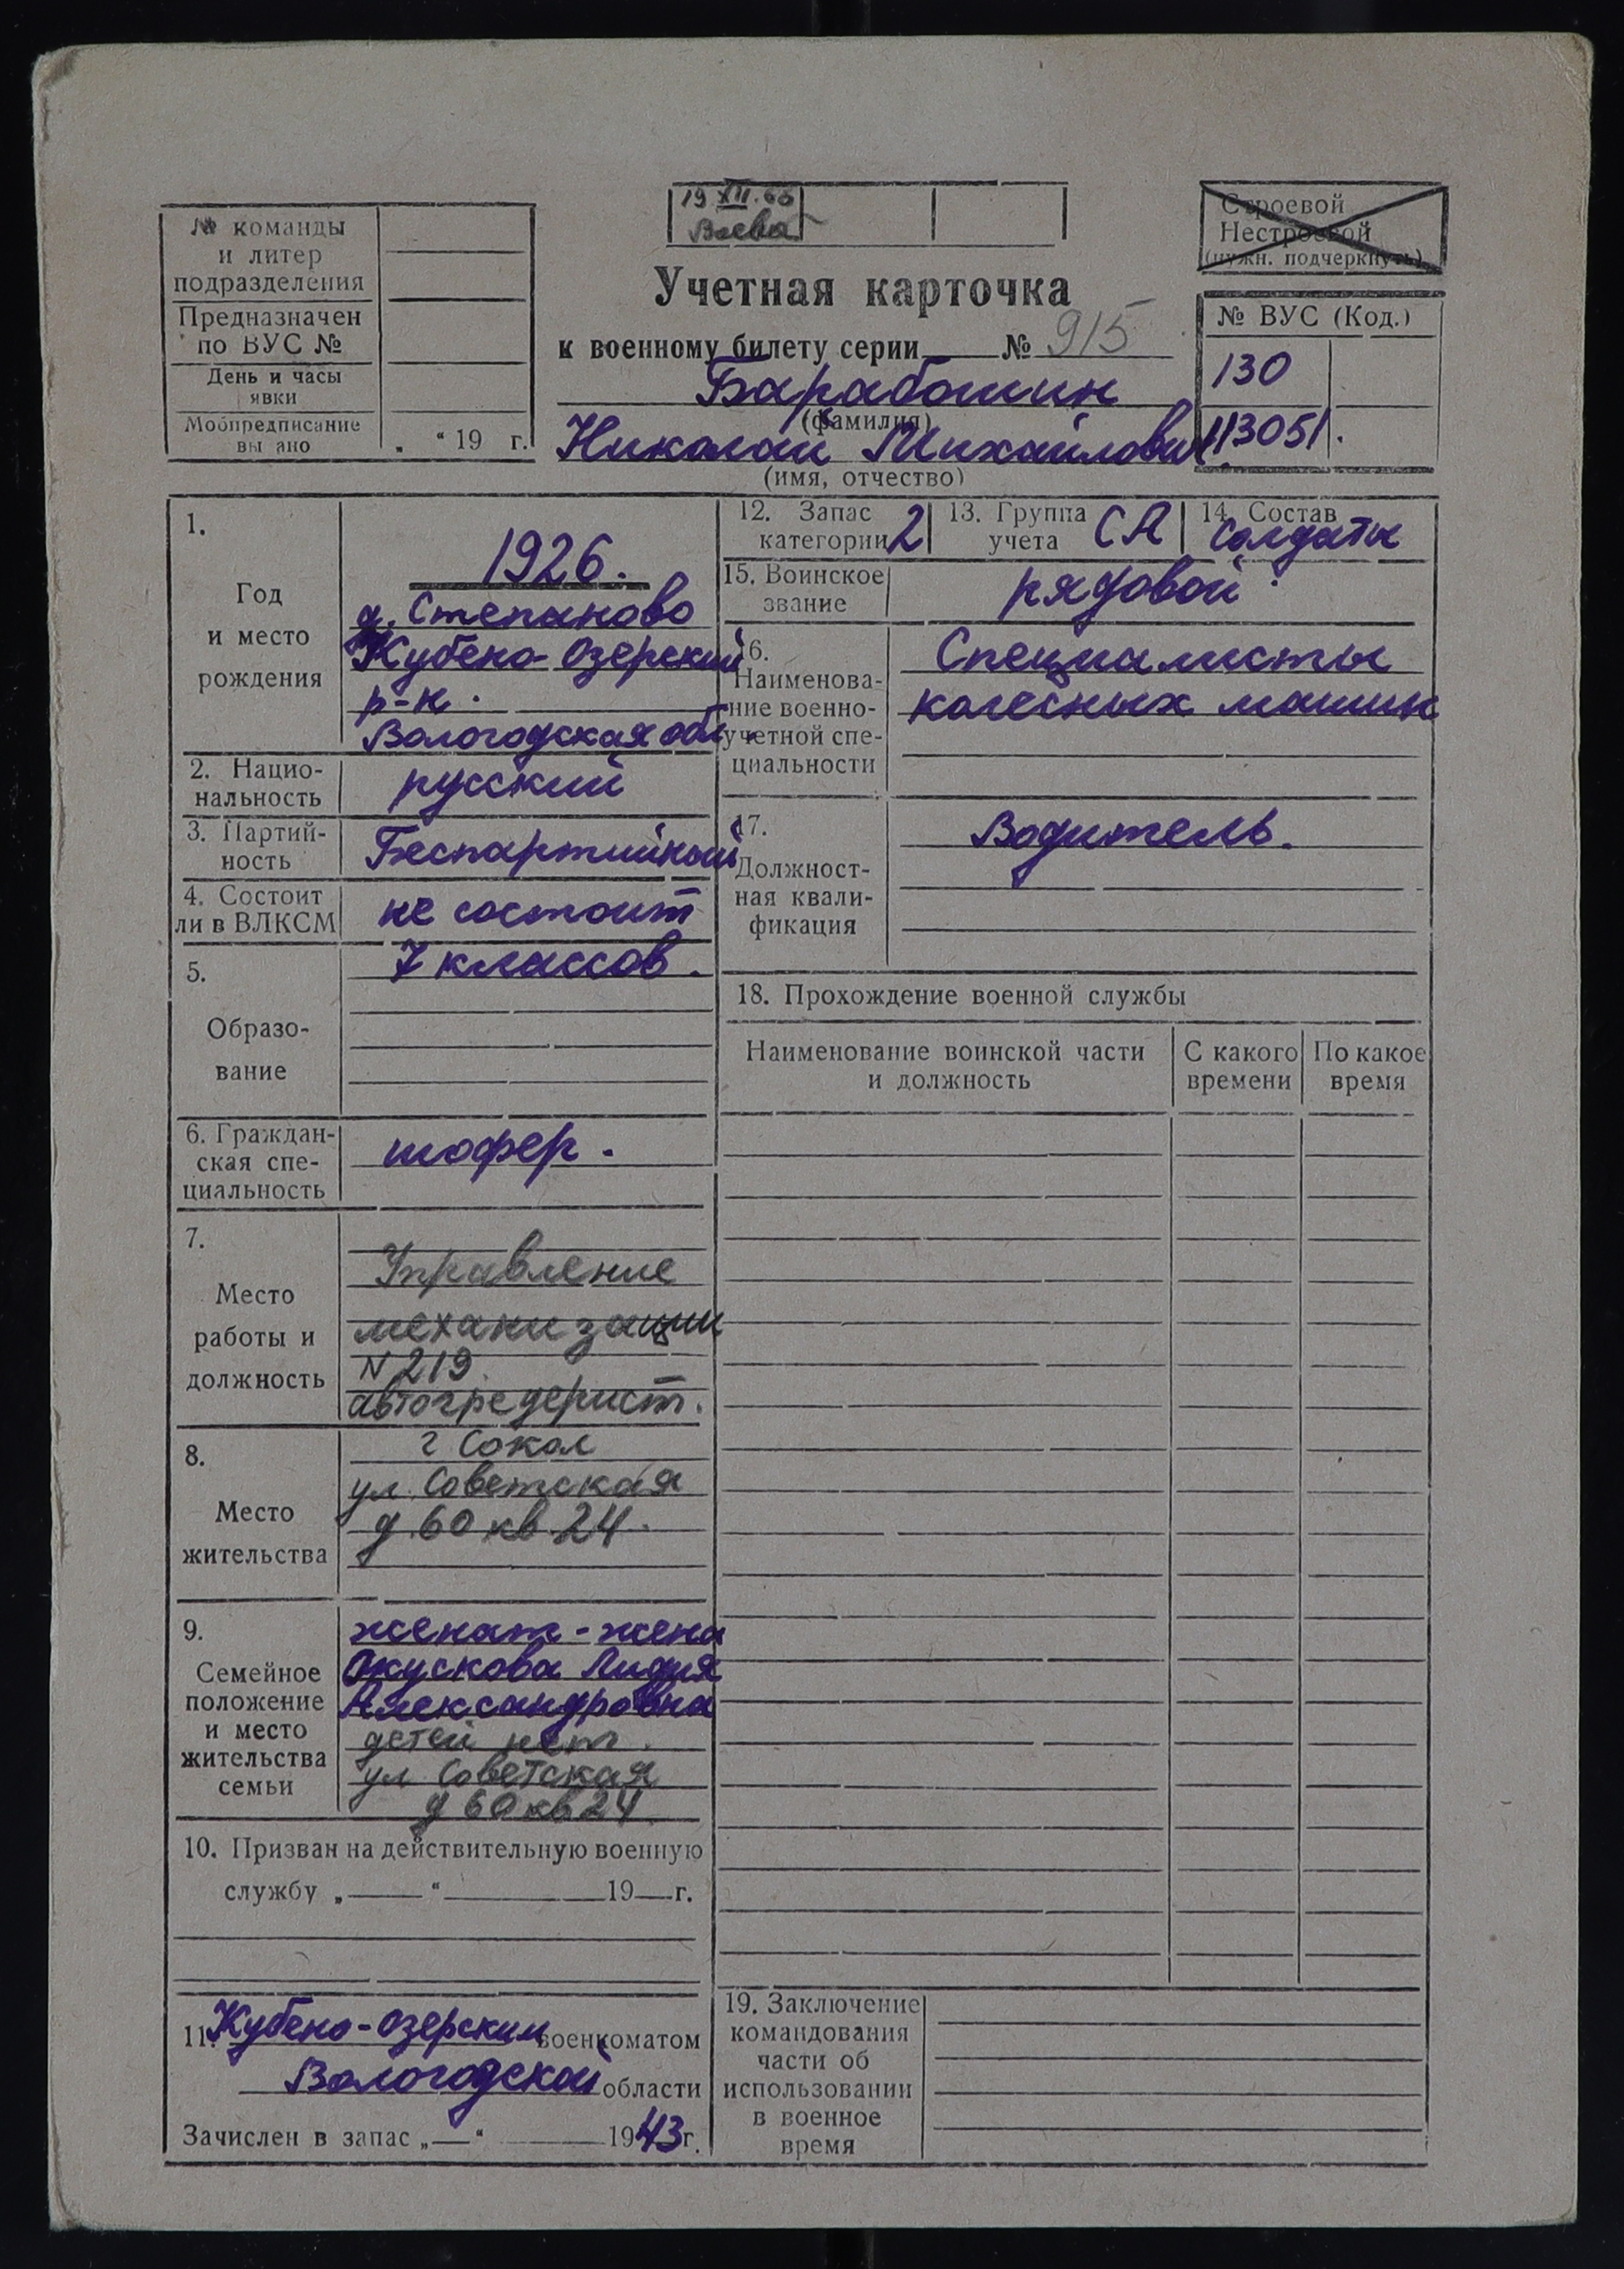 № команды
и литер
подразделения
Предназначен
по ВУС №
День и часы
явки
Мобпредписание
вы ано „ “ 19 г.
19 XII.66
Строевой
Нестроевой
(нужн. подчеркнуть)
Учетная карточка
к военному билету серии № 915
Барабошин
(фамилия)
Николай Михайлович
(имя, отчество)
№ ВУС (Код.)
130
113051.
1.
Год
и место
рождения
1926.
д. Степаново
Кубено-Озерский
р-н.
Вологодская обл.
2. Нацио-
нальность
русский
3. Партий-
ность
Беспартийный
4. Состоит
ли в ВЛКСМ
не состоит
5.
Образо-
вание
7 классов.
6. Граждан-
ская спе-
циальность
шофер.
7.
Место
работы и
должность
Управление
механизации
N 219.
автогредерист.
8.
Место
жительства
г Сокол
ул. Советская
д. 60 кв. 24.
9.
Семейное
положение
и место
жительства
семьи
женат - жена
Окускова Лидия
Александровна
детей нет.
ул Советская
д 60 кв 24
10. Призван на действительную военную
службу „ “ 19 г.
11. Кубено-Озерским военкоматом
Вологодской области
Зачислен в запас „ “ 1943 г.
12. Запас
категории 2
13. Группа
учета СА
14. Состав
солдаты
15. Воинское
звание
рядовой.
16.
Наименова-
ние военно-
учетной спе-
циальности
Специалисты
колесных машин
17.
Должност-
ная квали-
фикация
Водитель.
18. Прохождение военной службы
Наименование воинской части
и должность
С какого
времени
По какое
время
19. Заключение
командования
части об
использовании
в военное
время